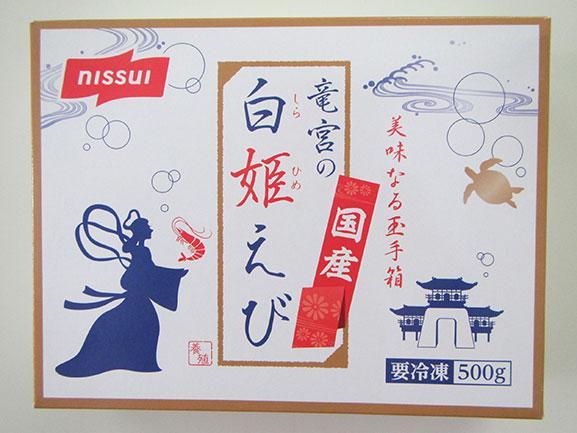 nissui
竜宮の
白姫えび
しら
ひめ
国産
美味なる玉手箱
養殖
要冷凍 500g